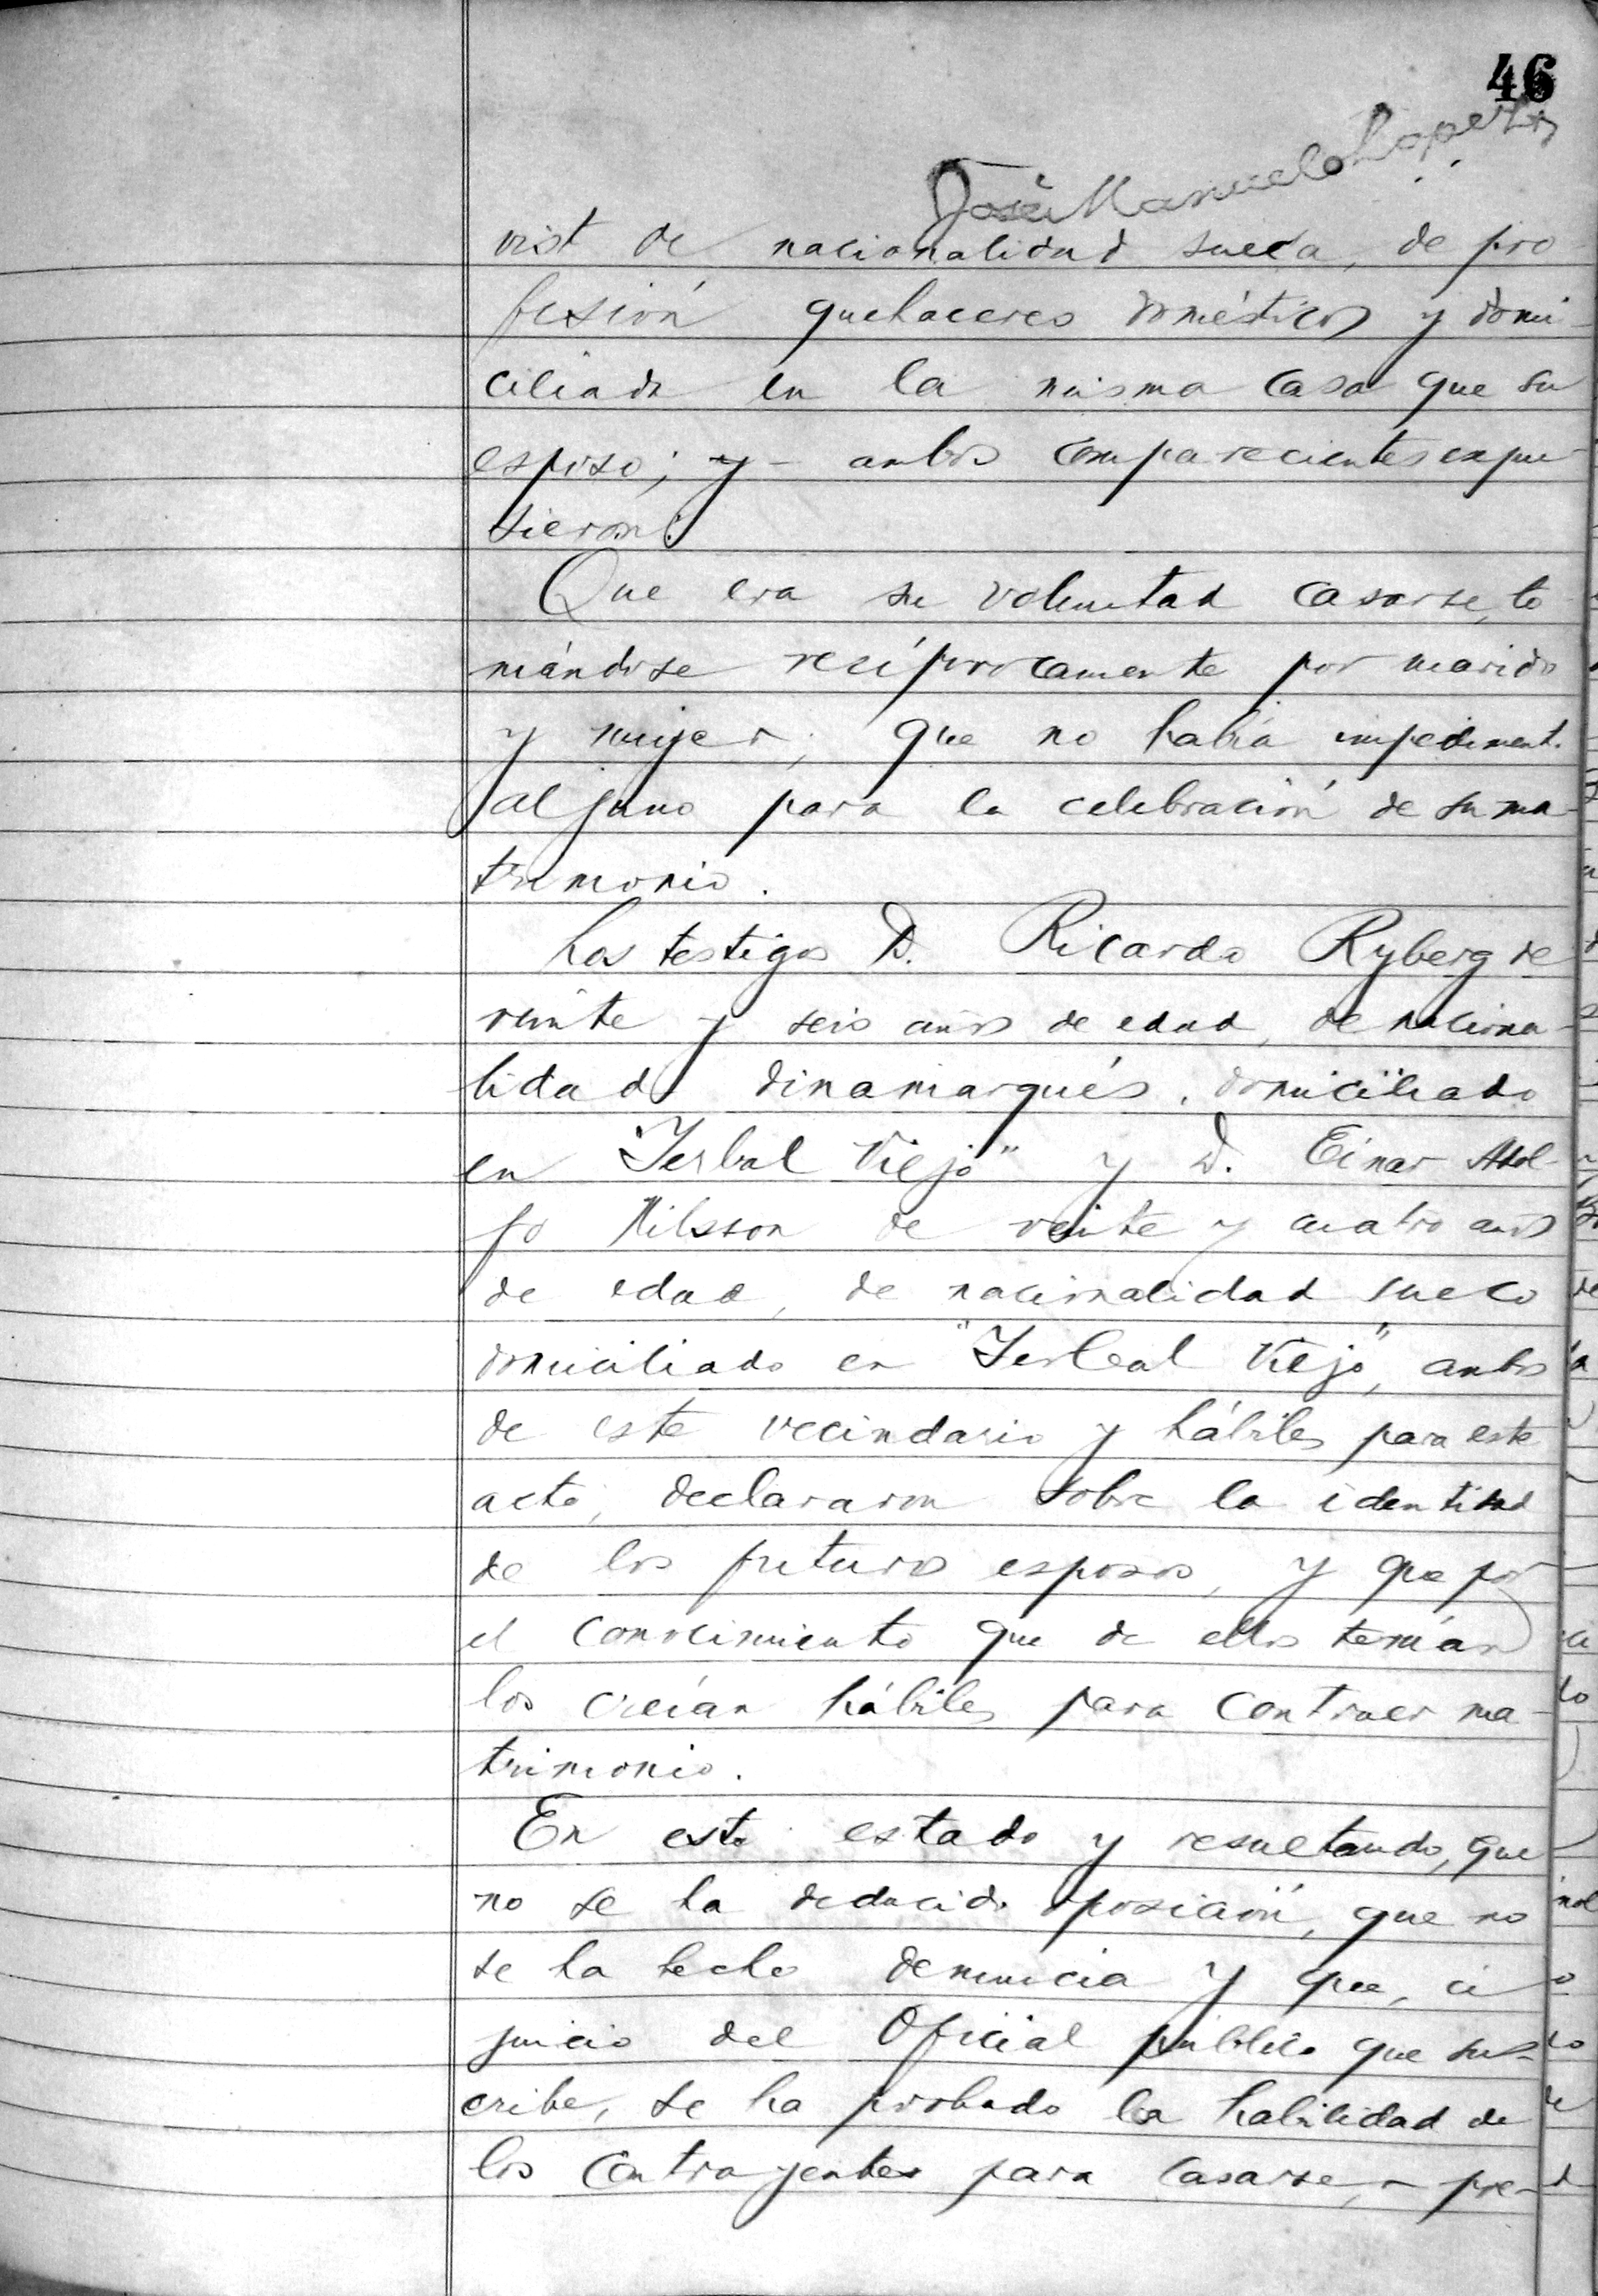 46
José Manuel Lopez
vist de nacionalidad sueca, de pro
fesión quehaceres domésticos y domi-
ciliada en la misma casa que su
esposo; y - ambos comparecientes expu
sieron:
Que era su voluntad casarse, to
mándose recíprocamente por marido
y mujer; que no había impediment.
alguno para la celebración de su ma-
trimonio.
Los testigos D. Ricardo Ryberg de
veinte y seis años de edad, de naciona-
lidad dinamarqués, domiciliado
en "Yerbal Viejo" y D. Einar Adol-
fo Nilsson de veinte y cuatro años
de edad, de nacionalidad sueco
domiciliado en "Yerbal Viejo", ambos
de este vecindario y hábiles para este
acto, declararon sobre la identidad
de los futuros esposos, y que por
el conocimiento que de ellos tenían
los creían hábiles para contraer ma-
trimonio.
En este estado y resultando, que
no se ha deducido oposición, que no
se ha hecho denuncia y que, a
juicio del Oficial público que sus-
cribe, se ha probado la habilidad de
los contrayentes para casarse, - pre-